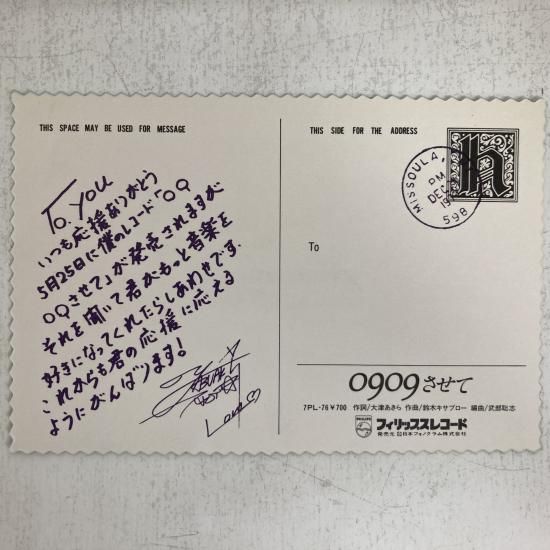 THIS SPACE MAY BE USED FOR MESSAGE
To. you
いつも応援ありがとう
5月25日に僕のレコード「○９
○９させて」が発売されますが
それを聞いて君がもっと音楽を
好きになってくれたらしあわせです。
これからも君の応援に応える
ようにがんばります!
Love♡
THIS SIDE FOR THE ADDRESS
MISSOULA,
PM
DEC
19
598
To
0909させて
7PL-76 ¥700 作詞/大津あきら 作曲/鈴木キサブロー 編曲/武部聡志
PHILIPS
フィリップスレコード
発売元 日本フォノグラム株式会社